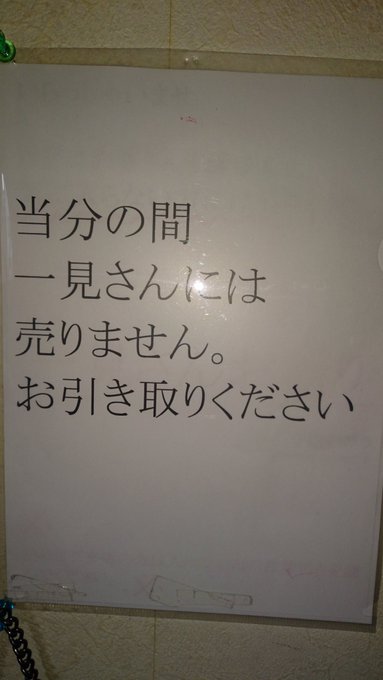 当分の間
一見さんには
売りません。
お引き取りください